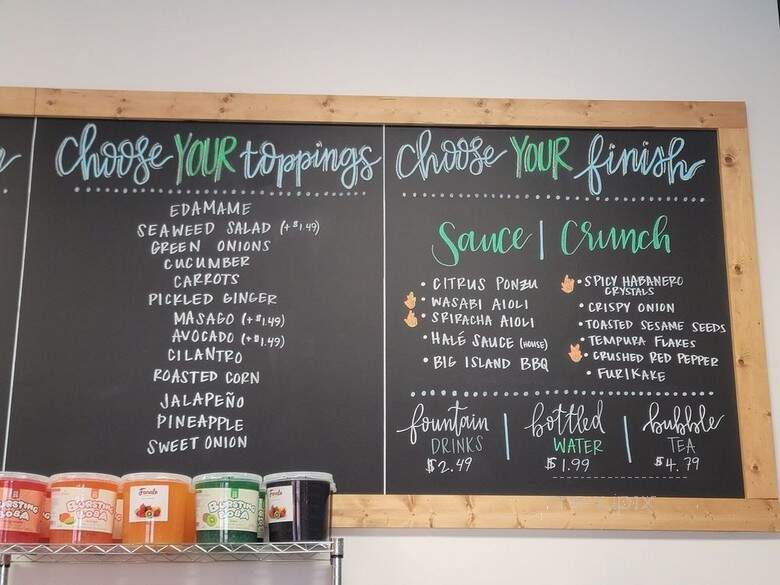 Choose YOUR toppings
EDAMAME
SEAWEED SALAD (+$1.49)
GREEN ONIONS
CUCUMBER
CARROTS
PICKLED GINGER
MASAGO (+$1.49)
AVOCADO (+$1.49)
CILANTRO
ROASTED CORN
JALAPEÑO
PINEAPPLE
SWEET ONION
Choose YOUR finish
Sauce | Crunch
• CITRUS PONZU
• WASABI AIOLI
• SRIRACHA AIOLI
• HALÉ SAUCE (HOUSE)
• BIG ISLAND BBQ
• SPICY HABANERO
CRYSTALS
• CRISPY ONION
• TOASTED SESAME SEEDS
• TEMPURA FLAKES
• CRUSHED RED PEPPER
• FURIKAKE
fountain
DRINKS
$2.49
bottled
WATER
$1.99
bubble
TEA
$4.79
BURSTING
BOBA
Fanale
BURSTING
BOBA